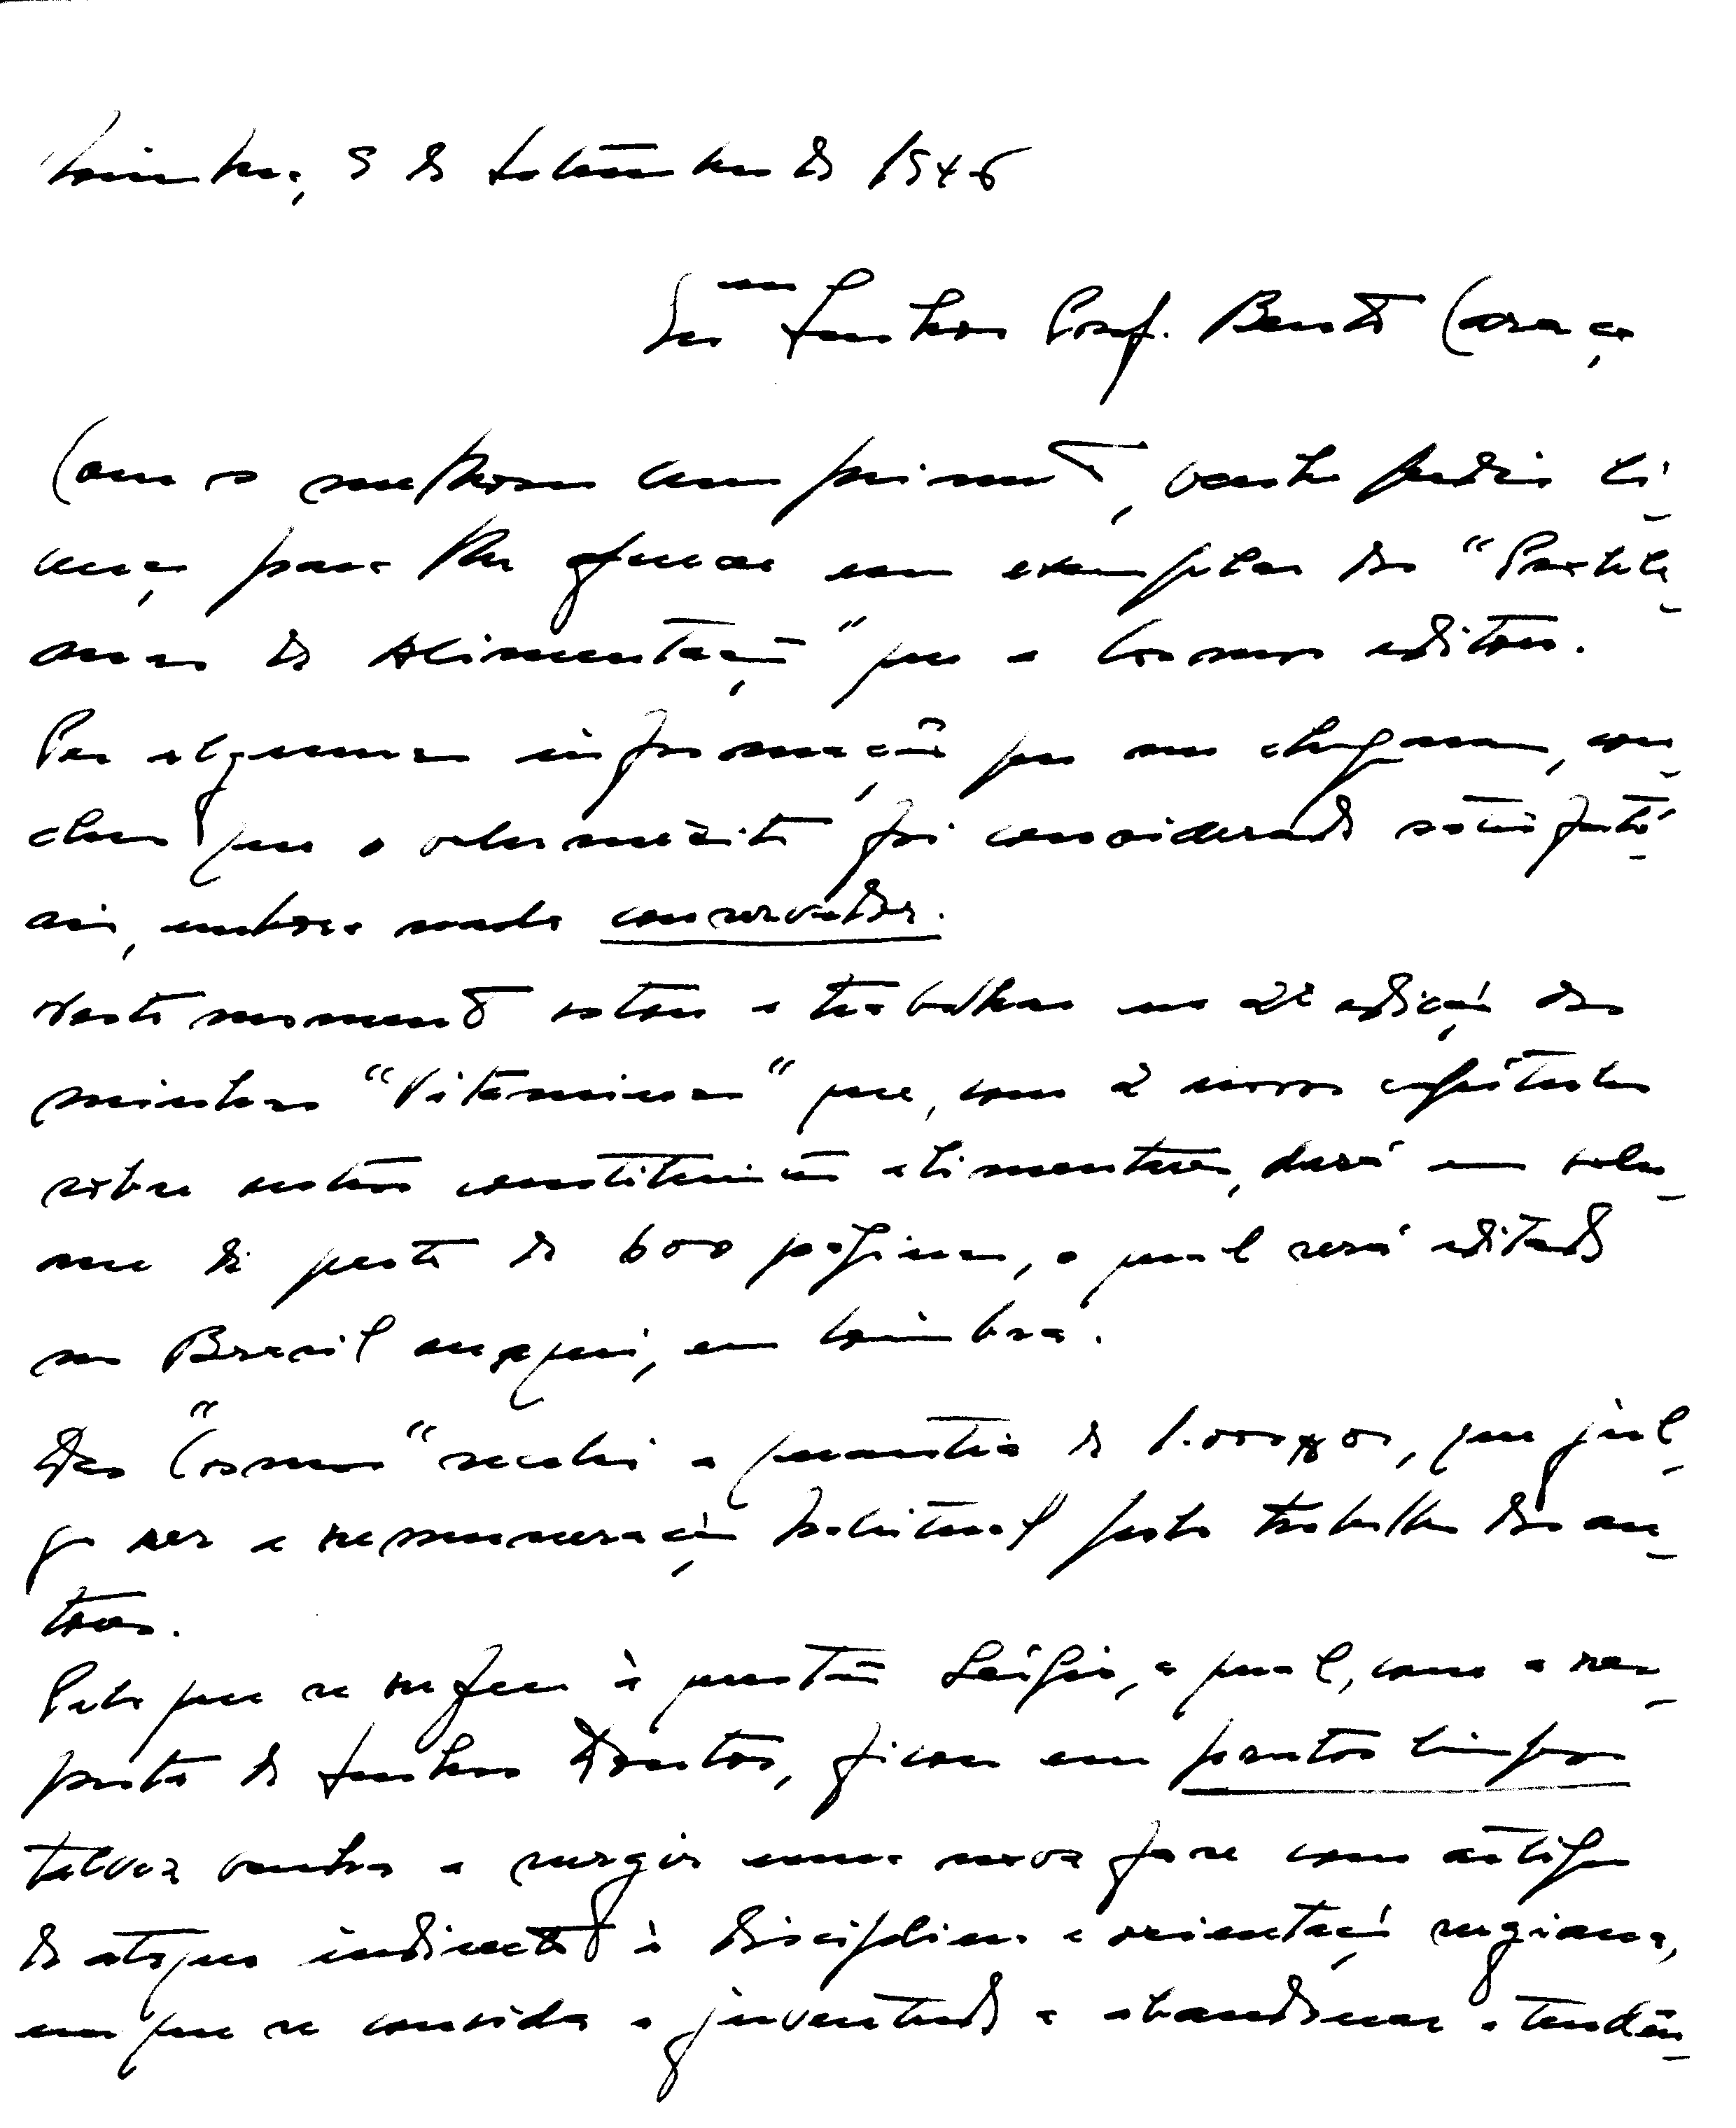 Coimbra, 9 de Setembro de 1946
Senhor Prof. Bento Caraça
Com os melhores cumprimentos, venho pedir li-
cença para lhe oferecer um exemplar do "Proble-
mas de Alimentação" que a Cosmos editou.
Por algumas informações que me chegaram, con-
cluo que o volumezito foi considerado satisfató-
rio, embora nada conservador.
Neste momento estou a trabalhar na 2ª edição das
minhas "Vitaminas" que, com 2 novos capítulos
sobre outros constituintes alimentares, dará um volu-
me de perto de 600 páginas, o qual será editado
no Brasil ou aqui, em Coimbra.
Da "Cosmos" recebi a quantia de 1.000$00, que jul-
go ser a remuneração habitual pelo trabalho dos au-
tores.
Pelo que se refere à questão Sérgio, a qual, com a res-
posta de Senhor Doutor, ficou em pratos limpos
talvez venha a surgir uma nova fase com artigos
de ataque indirecto à disciplina e orientação sergiana,
em que se convida a juventude a abandonar a tendên-